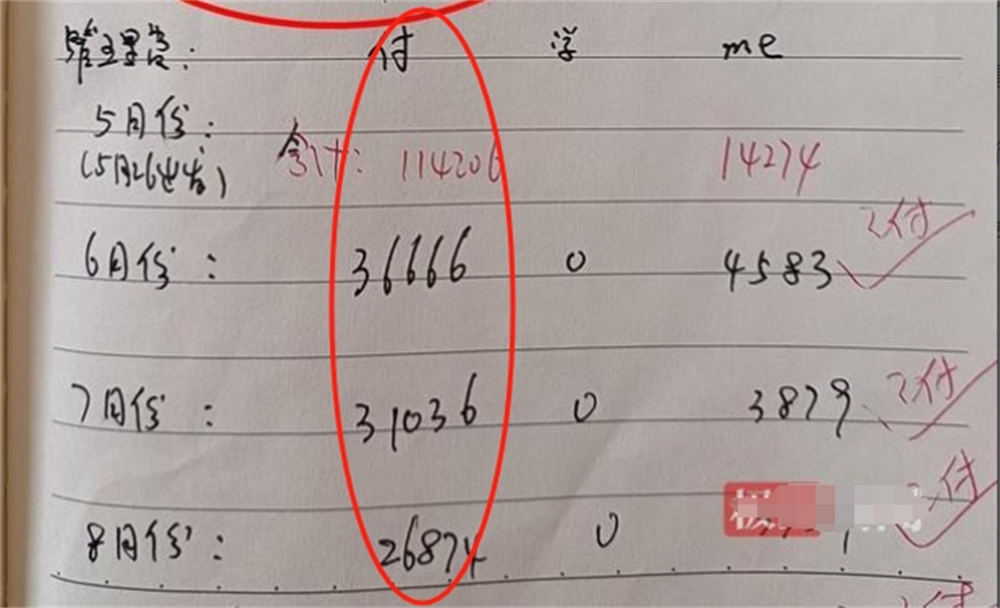 管理费: 付 学 me
5月份:
(5月26进者) 合计: 114206 14274
6月份: 36666 0 4583 已付
7月份: 31036 0 3879 已付
8月份: 26874 0 已付